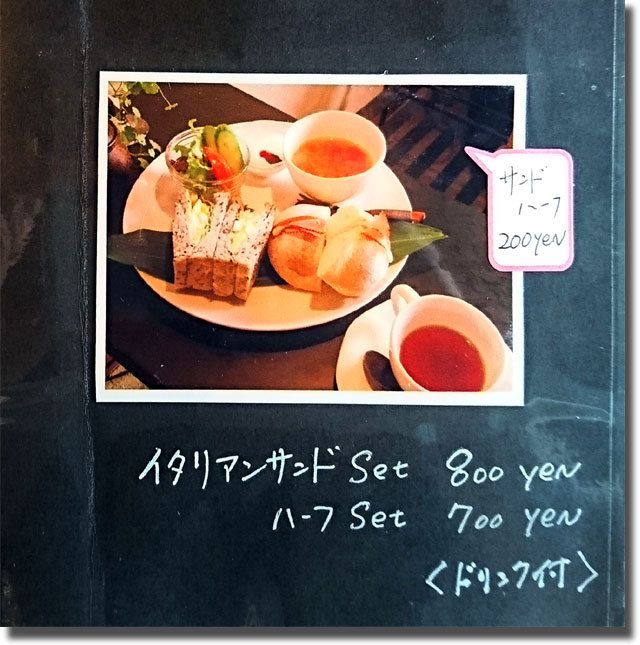 サンド
ハーフ
200yen
イタリアンサンド Set 800 yen
ハーフ Set 700 yen
〈ドリンク付〉